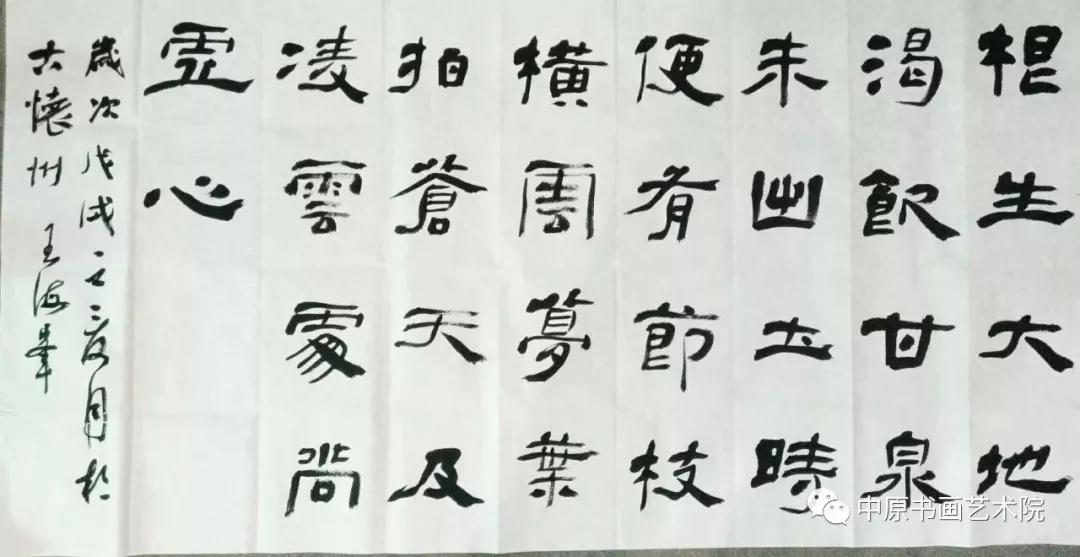 根生大地
渴飲甘泉
未出土時
便有節枝
橫雲夢葉
拍蒼天及
凌雲處尚
虛心
歲次戊戌月於
古懷州 王海峯
中原书画艺术院